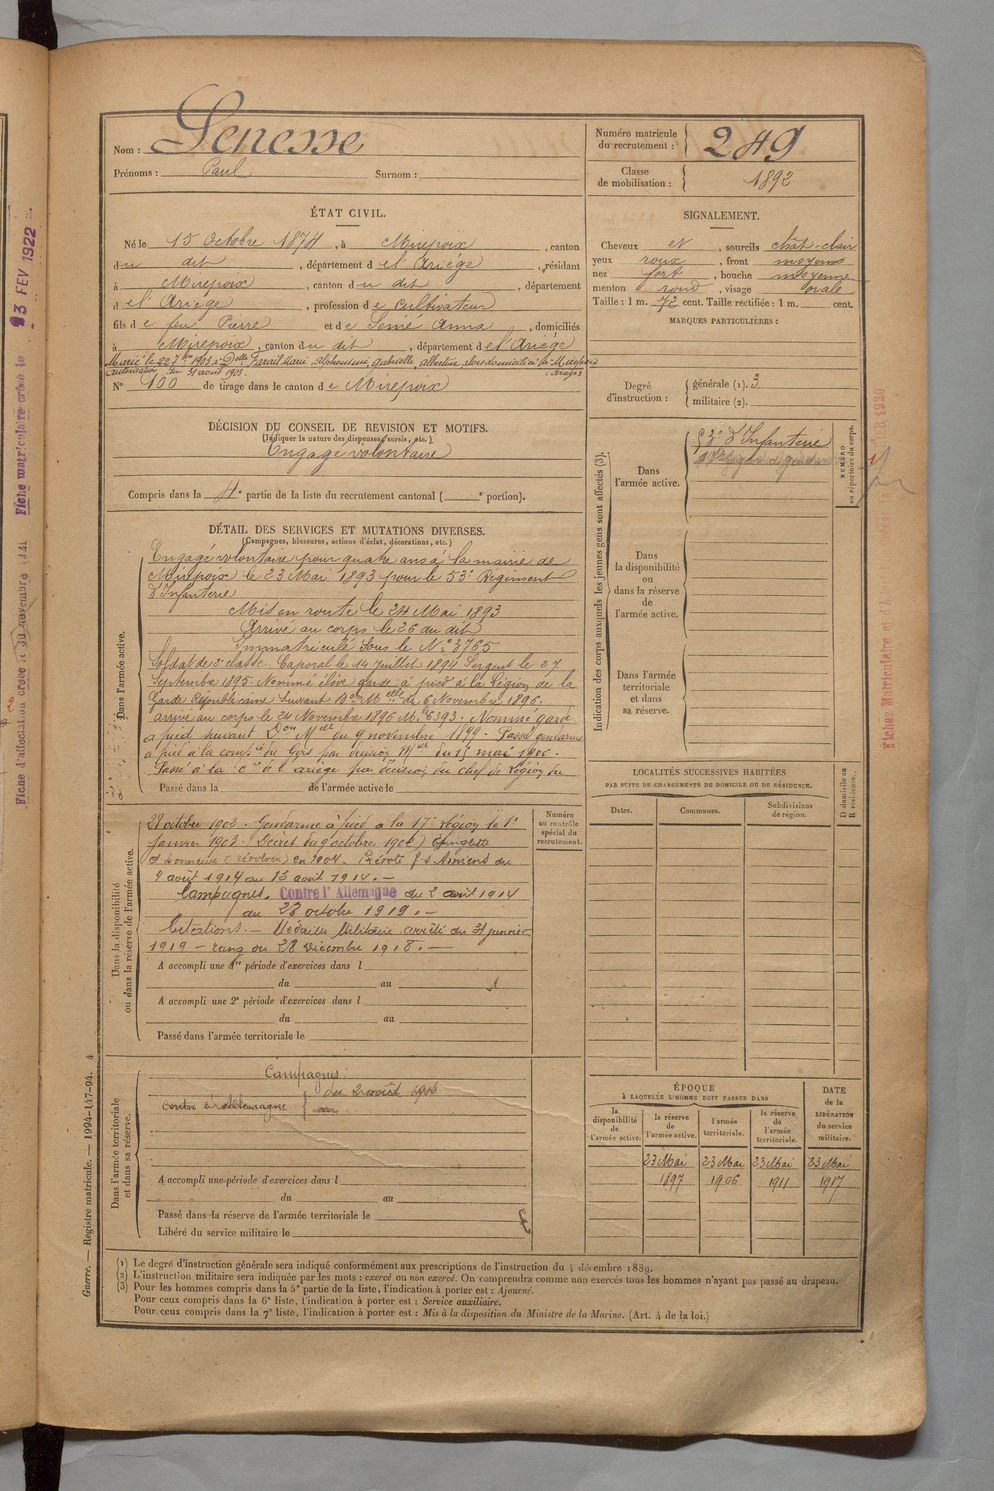 Nom : Senesse
Prénoms : Paul Surnom :
Numéro matricule du recrutement : 249
Classe de mobilisation : 1892
ÉTAT CIVIL.
Né le 15 Octobre 1874, à Mirepoix, canton
du dit, département de l'Ariége, résidant
à Mirepoix, canton du dit, département
d e l'Ariége, profession de Cultivateur
fils de feu Pierre et de Semé Anna, domiciliés
à Mirepoix, canton du dit, département de l'Ariége
Marié le 22 7bre 1903 à Delle Marie, alphonsine, gabrielle, albertine, domiciliée à Mirepoix
autorisation du 31 août 1903. (Ariège)
N° 100 de tirage dans le canton de Mirepoix
DÉCISION DU CONSEIL DE REVISION ET MOTIFS.
(Indiquer la nature des dispenses, sursis, etc.)
Engagé volontaire
Compris dans la 4e partie de la liste du recrutement cantonal ( e portion).
DÉTAIL DES SERVICES ET MUTATIONS DIVERSES.
(Campagnes, blessures, actions d'éclat, décorations, etc.)
Dans l'armée active.
Engagé volontaire pour quatre ans à la mairie de
Mirepoix le 23 Mai 1893 pour le 53e Régiment
d'Infanterie
Mis en route le 24 Mai 1893
Arrivé au corps le 26 du dit
Immatriculé sous le N° 3765
Soldat de 2e classe. Caporal le 14 Juillet 1894 Sergent le 27
Septembre 1895. Nommé élève garde à pied à la Légion de la
Garde Républicaine suivant Don Melle du 6 Novembre 1896.
arrivé au corps le 24 Novembre 1896 Mle 6393. Nommé garde
à pied suivant Don Melle du 9 novembre 1897. Passé gendarme
à pied à la compie du Gers par décision Mlle du 15 mai 1900.
Passé à la Cie de l'ariége par décision du chef de Légion du
Passé dans la de l'armée active le
Dans la disponibilité ou dans la réserve de l'armée active.
28 octobre 1902. Gendarme à pied à la 17e Légion le 1er
janvier 1903 (Décret du 9 octobre 1902) Epinglette
d'honneur (révolver) en 1904. Prévoté Amiens du
4 août 1914 au 15 août 1914. -
Campagnes. Contre l'Allemagne du 2 avril 1914
au 23 octobre 1919. -
Citations. - Médaille Militaire arrêté du 31 janvier
1919 - rang du 28 Décembre 1918. -
A accompli une 1re période d'exercices dans l
du au
A accompli une 2e période d'exercices dans l
du au
Passé dans l'armée territoriale le
Numéro au contrôle spécial du recrutement.
Dans l'armée territoriale et dans sa réserve.
Campagnes :
contre l'Allemagne du 2 août 1914
au
A accompli une période d'exercices dans l
du au
Passé dans la réserve de l'armée territoriale le
Libéré du service militaire le
SIGNALEMENT.
Cheveux et, sourcils chât-clair
yeux roux, front moyens
nez fort, bouche moyenne
menton rond, visage ovale
Taille : 1 m. 72 cent. Taille rectifiée : 1 m. cent.
MARQUES PARTICULIÈRES :
Degré d'instruction : générale (1). 3
militaire (2).
Indication des corps auxquels les jeunes gens sont affectés (3).
Dans l'armée active.
53e d'Infanterie
NUMÉRO au répertoire du corps.
Dans la disponibilité ou dans la réserve de l'armée active.
Dans l'armée territoriale et dans sa réserve.
LOCALITÉS SUCCESSIVES HABITÉES
PAR SUITE DE CHANGEMENTS DE DOMICILE OU DE RÉSIDENCE.
Dates. Communes. Subdivisions de région.
D domicile ou R résidence.
ÉPOQUE
À LAQUELLE L'HOMME DOIT PASSER DANS
la disponibilité de l'armée active.
la réserve de l'armée active.
l'armée territoriale.
la réserve de l'armée territoriale.
DATE de la LIBÉRATION du service militaire.
23 Mai 23 Mai 23 Mai 23 Mai
1897 1906 1911 1917
(1) Le degré d'instruction générale sera indiqué conformément aux prescriptions de l'instruction du 4 décembre 1889.
(2) L'instruction militaire sera indiquée par les mots : exercé ou non exercé. On comprendra comme non exercés tous les hommes n'ayant pas passé au drapeau.
(3) Pour les hommes compris dans la 5e partie de la liste, l'indication à porter est : Ajourné.
Pour ceux compris dans la 6e liste, l'indication à porter est : Service auxiliaire.
Pour ceux compris dans la 7e liste, l'indication à porter est : Mis à la disposition du Ministre de la Marine. (Art. 4 de la loi.)
Guerre. — Registre matricule. — 1994-147-94. 4
Fiche matriculaire créée le 13 FEV 1922
Fiche d'affectation créée le 30 novembre
Fiches Matriculaire et